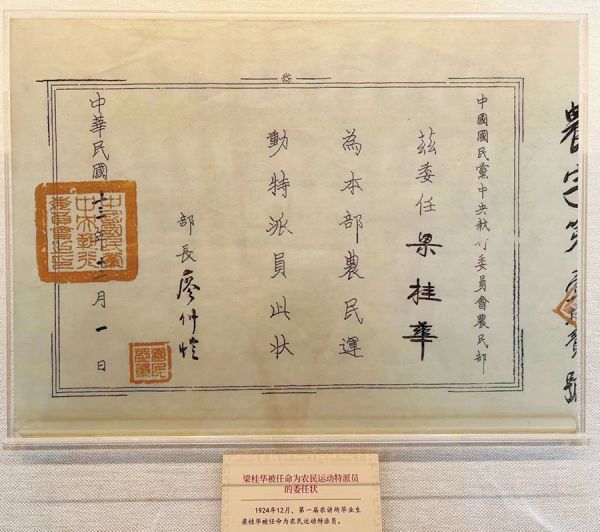 中國國民黨中央執行委員會農民部
茲委任梁桂華
為本部農民運
動特派員此狀
部長廖仲愷
中華民國十三年十二月一日
中國國民黨
中央執行
委員會之印
農民
部章
梁桂华被任命为农民运动特派员
的委任状
1924年12月，第一届农讲所毕业生
梁桂华被任命为农民运动特派员。